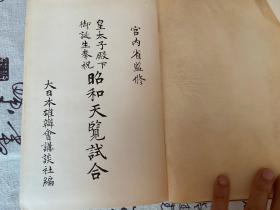 宮内省監修
皇太子殿下
御誕生奉祝
昭和天覧試合
大日本雄辯會講談社編